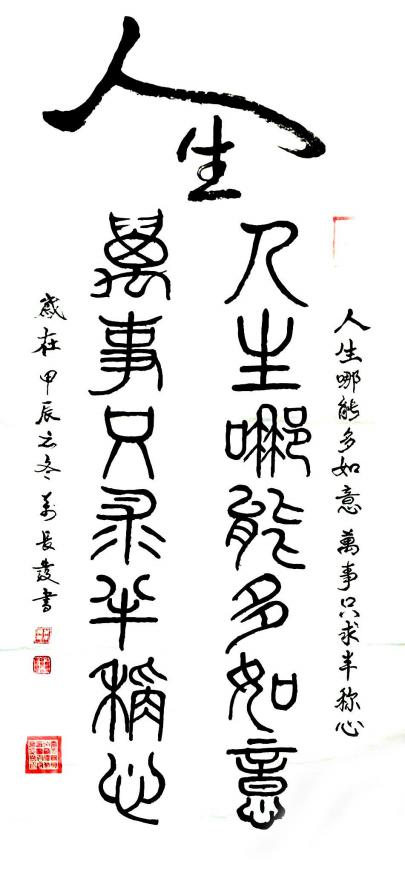 人生
人生哪能多如意 萬事只求半称心
人生哪能多如意
萬事只求半稱心
歲在甲辰之冬